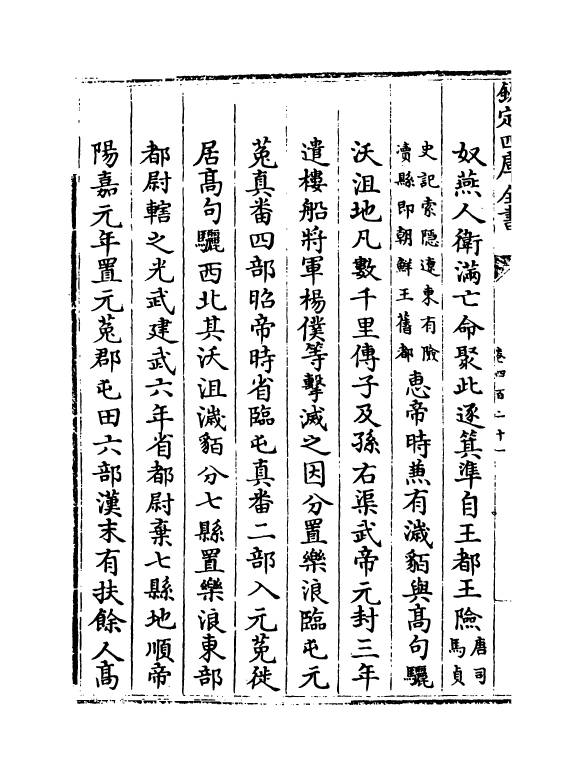 欽定四庫全書
卷四百二十一
奴燕人衛滿亡命聚此逐箕準自王都王險唐司馬貞
史記索隠遼東有險瀆縣即朝鮮王舊都恵帝時兼有濊貊與髙句驪
沃沮地凡數千里傳子及孫右渠武帝元封三年
遣樓船將軍楊僕等擊滅之因分置樂浪臨屯元
菟真番四部昭帝時省臨屯真番二部入元菟徙
居髙句驪西北其沃沮濊貊分七縣置樂浪東部
都尉轄之光武建武六年省都尉棄七縣地順帝
陽嘉元年置元菟郡屯田六部漢末有扶餘人髙